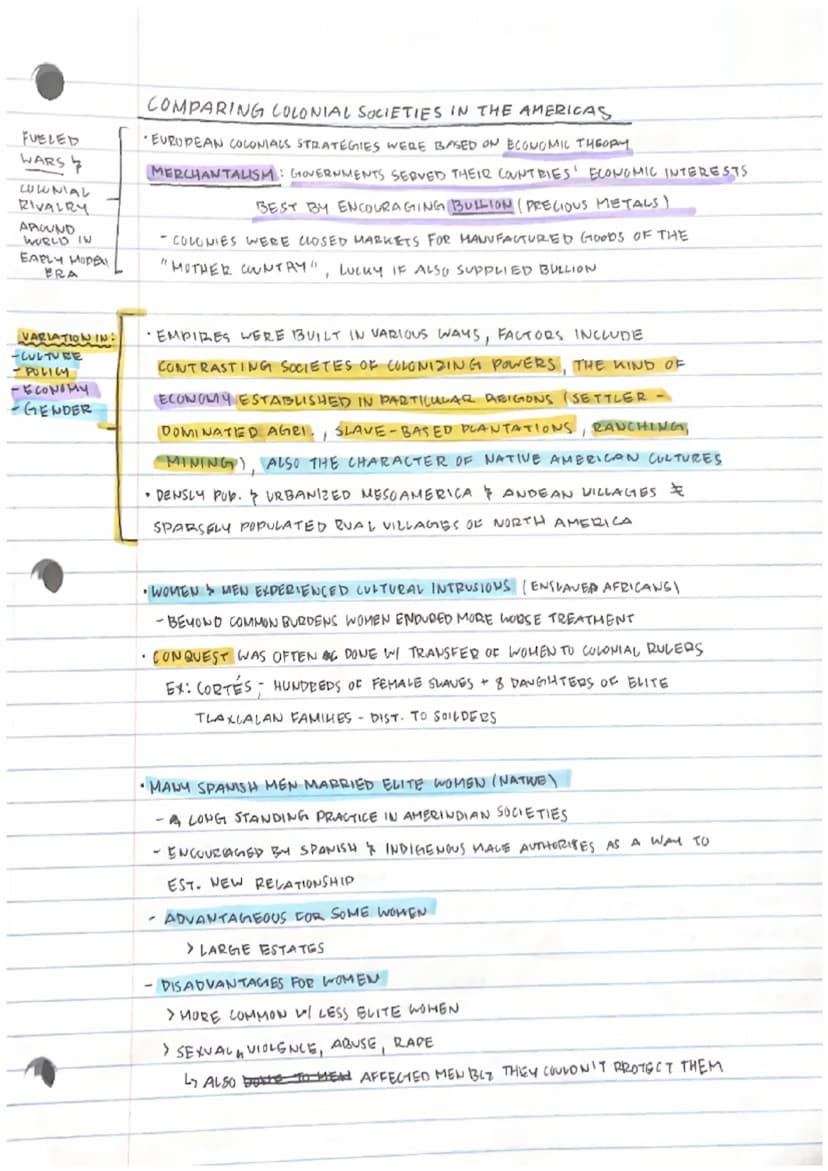 COMPARING COLONIAL SOCIETIES IN THE AMERICAS
FUELED
WARS &
COLONIAL
RIVALRY
AROUND
WORLD IN
EARLY MODERN
ERA
• EUROPEAN COLONIALS STRATEGIES WERE BASED ON ECONOMIC THEORY
MERCHANTALISM: GOVERNMENTS SERVED THEIR COUNTRIES' ECONOMIC INTERESTS
BEST BY ENCOURAGING BULLION (PRECIOUS METALS)
- COLONIES WERE CLOSED MARKETS FOR MANUFACTURED GOODS OF THE
"MOTHER COUNTRY", LUCKY IF ALSO SUPPLIED BULLION
VARIATION IN:
- CULTURE
- POLICY
- ECONOMY
- GENDER
• EMPIRES WERE BUILT IN VARIOUS WAYS, FACTORS INCLUDE
CONTRASTING SOCIETES OF COLONIZING POWERS, THE KIND OF
ECONOMY ESTABLISHED IN PARTICULAR REIGONS (SETTLER -
DOMINATED AGRI., SLAVE-BASED PLANTATIONS, RANCHING,
MINING), ALSO THE CHARACTER OF NATIVE AMERICAN CULTURES
• DENSLY POP. & URBANIZED MESOAMERICA & ANDEAN VILLAGES ≠
SPARSELY POPULATED RUAL VILLAGES OF NORTH AMERICA
• WOMEN & MEN EXPERIENCED CULTURAL INTRUSIONS (ENSLAVED AFRICANS)
- BEYOND COMMON BURDENS WOMEN ENDURED MORE WORSE TREATMENT
• CONQUEST WAS OFTEN DONE W/ TRANSFER OF WOMEN TO COLONIAL RULERS
EX: CORTÉS - HUNDREDS OF FEMALE SLAVES + 8 DAUGHTERS OF ELITE
TLAXCALAN FAMILIES - DIST. TO SOILDERS
• MANY SPANISH MEN MARRIED ELITE WOMEN (NATIVE)
- A LONG STANDING PRACTICE IN AMERINDIAN SOCIETIES
- ENCOURAGED BY SPANISH & INDIGENOUS MALE AUTHORITIES AS A WAY TO
EST. NEW RELATIONSHIP
- ADVANTAGEOUS FOR SOME WOMEN
> LARGE ESTATES
- DISADVANTAGES FOR WOMEN
> MORE COMMON W/ LESS ELITE WOMEN
> SEXUAL VIOLENCE, ABUSE, RAPE
↳ ALSO DONE TO MEN AFFECTED MEN BLZ THEY COULDN'T PROTECT THEM